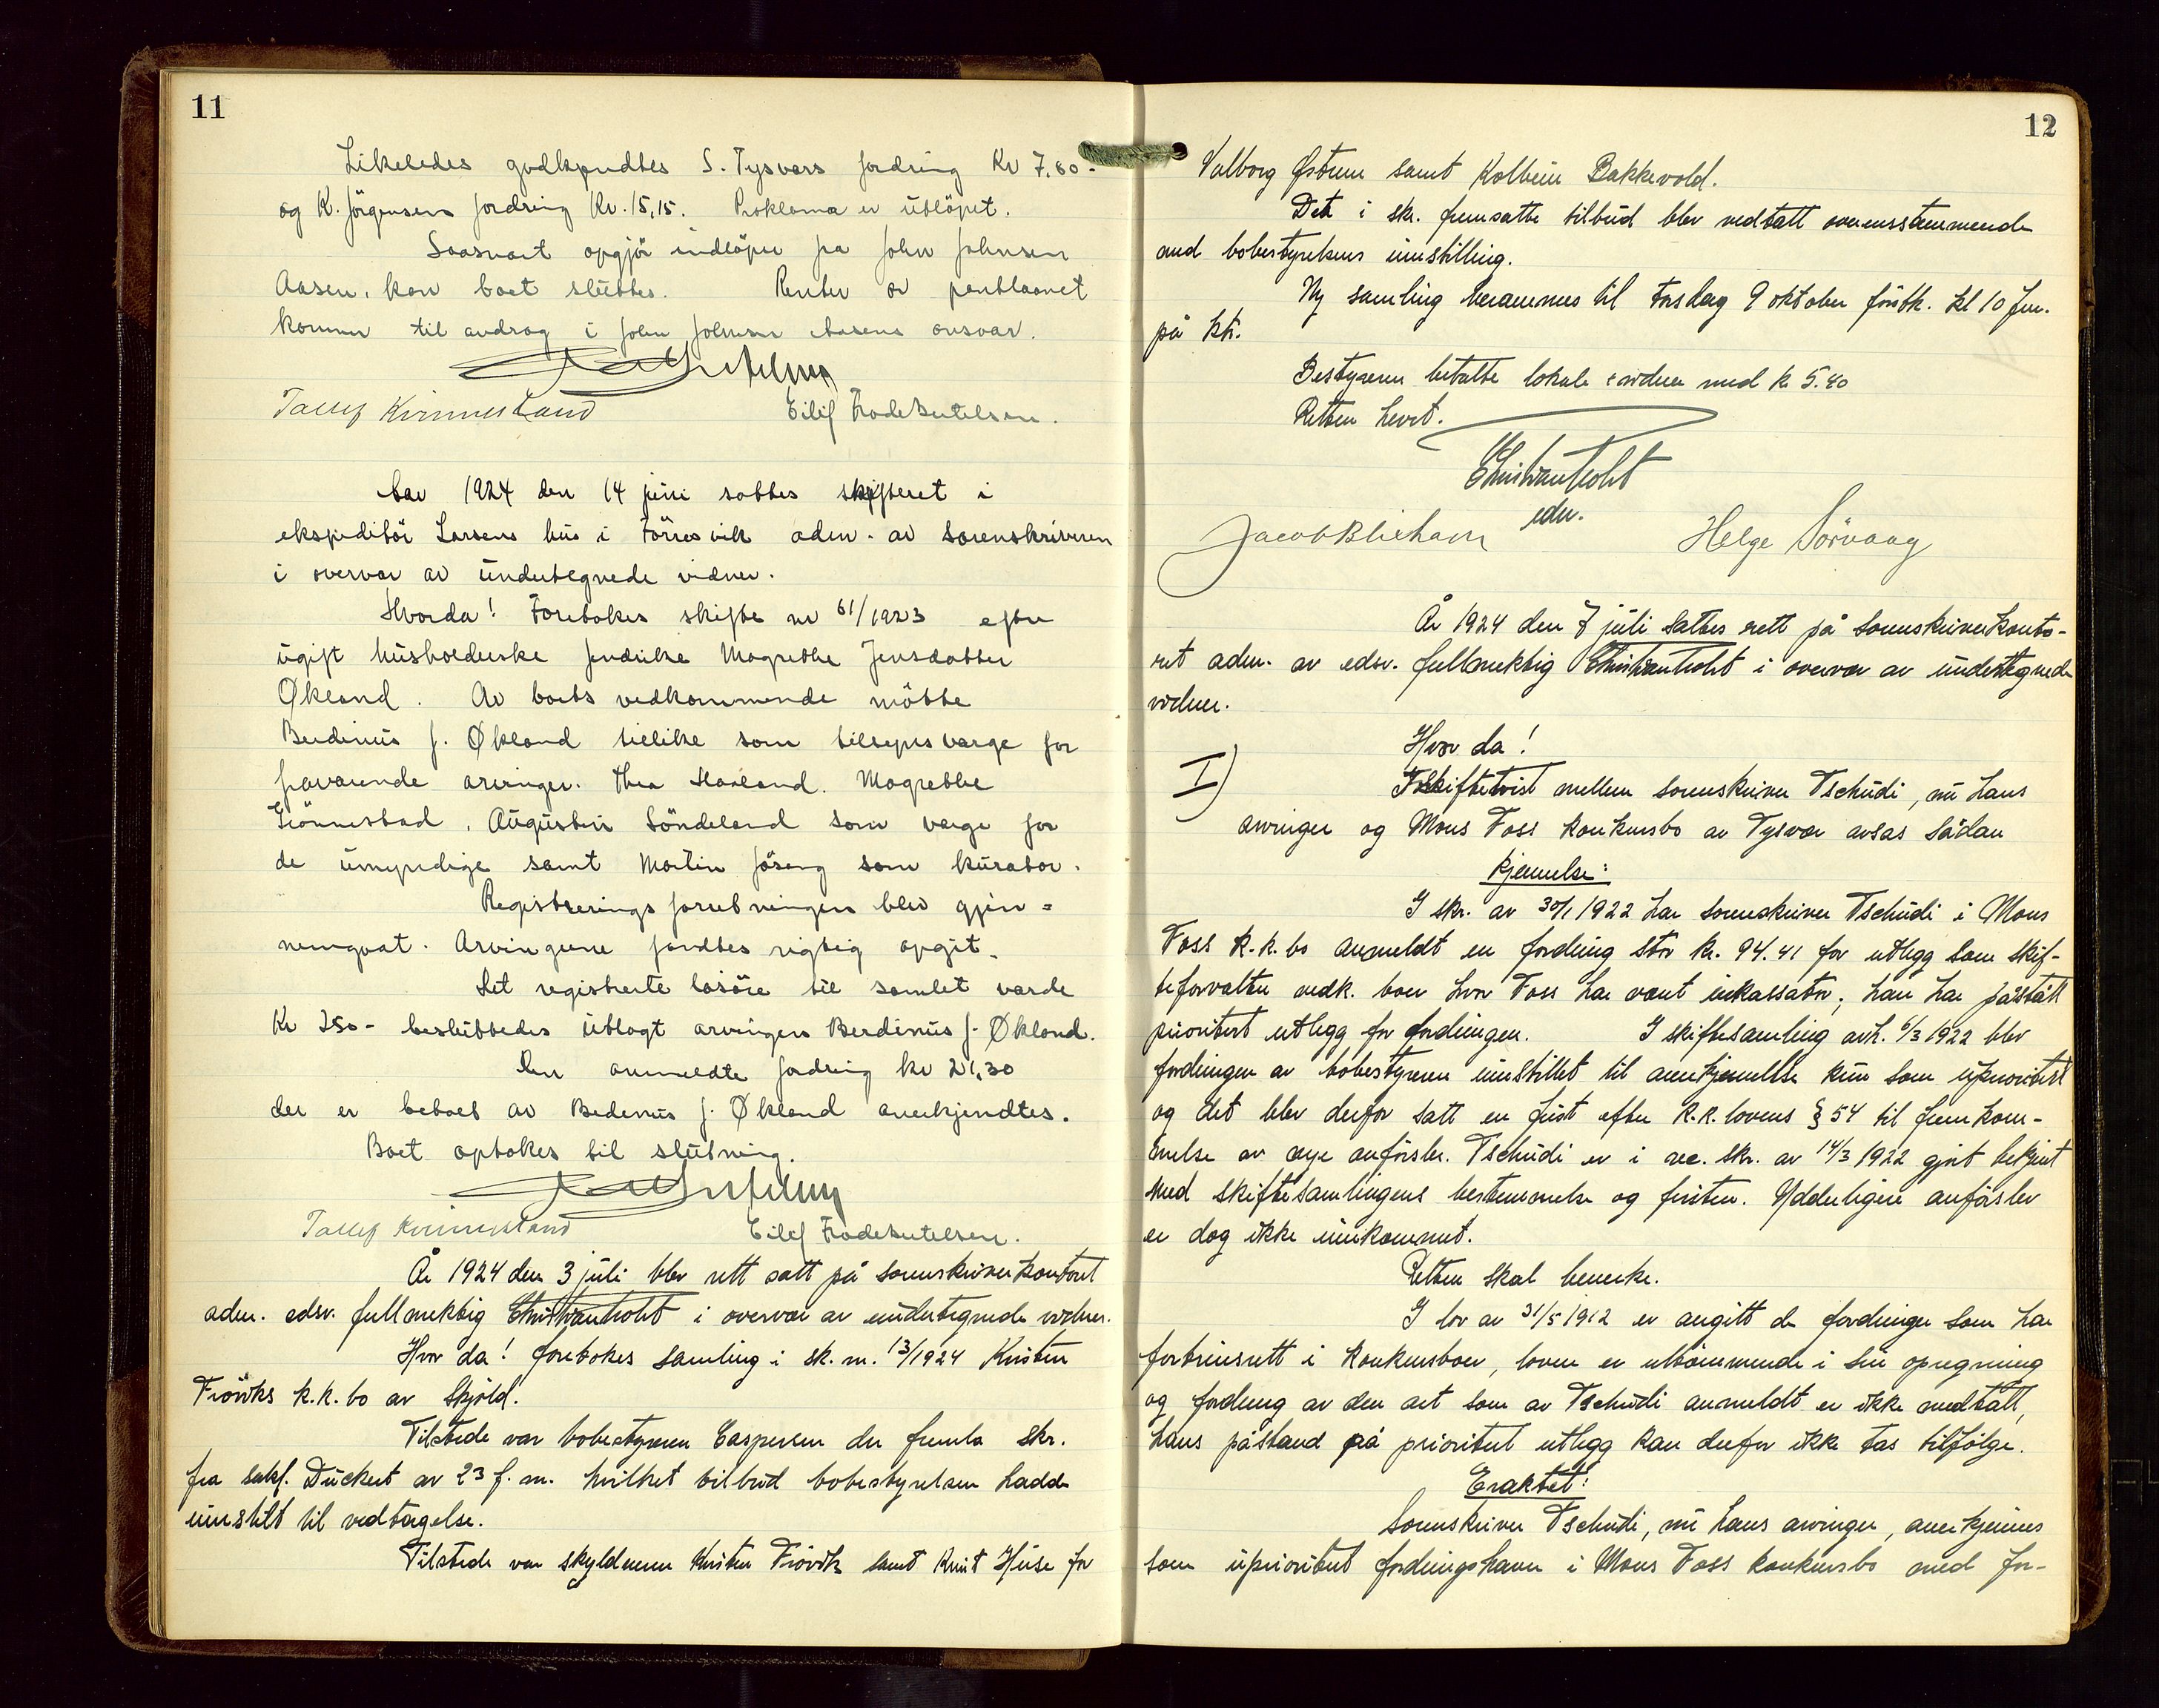 11
Likeledes godkjendtes S. Tysværs fordring Kr 7,80-
og K. Jørgensens fordring Kr. 15,15. Proklama er utløpet.
Saasnart opgjør indløper fra John Johnsen
Aasen, kan boet sluttes. Renter av pantlaanet
kommer til avdrag i John Johnsen Aasens ansvar.
Tallef Kvinnesland Eilif Frode Knutelsen.
Aar 1924 den 14 juni sattes skifteret i
ekspeditør Larsens hus i Førresvik adm. av sorenskriveren
i overvær av undertegnede vidner.
Hvorda! Foretokes skifte nr 61/1923 efter
ugift husholderske Jendrikke Magrethe Jensdatter
Økland. Av boets vedkommende møtte
Berdinius J. Økland tillike som tilsynsverge for
fraværende arvinger. Thea Haaland. Magrethe
Grønnestad, Augustin Søndeland som verge for
de umyndige samt Martin Jøsang som kurator.
Registreringsforretningen blev gjen=
nemgaat. Arvingerne fandtes rigtig opgit.
Det registrerte løsøre til samlet værde
Kr 250- besluttedes utlagt arvingen Berdinius J. Økland.
Den anmeldte fordring kr 21,30
der er betalt av Bedinius J. Økland anerkjendtes.
Boet optokes til slutning.
Tallef Kvinnesland Eilif Frode Knutelsen.
År 1924 den 3 juli blev rett satt på sorenskriverkontoret
adm. edsv. fullmektig Christian Holst i overvær av undertegnede vidner.
Hvor da! foretokes samling i sk. nr. 13/1924 Kristen
Frøviks k.k. bo av Skjold.
Tilstede var bobestyreren Caspersen der fremla skr.
fra sakf. Duckert av 23 f. m. hvilket tilbud bobestyrelsen hadde
innstilt til vedtagelse.
Tilstede var skyldneren Kristen Frøvik samt Knut Huse for
12
Valborg Østrem samt Kolbein Bakkevold.
Det i skr. fremsatte tilbud blev vedtatt overensstemmende
med bobestyrelsens innstilling.
Ny samling berammes til torsdag 9 oktober førstk. kl 10 fm.
på ktr.
Bestyreren betalte lokale & vidner med kr 5.40
Retten hevet.
Christian Holst
edsv.
Jacob Blikham Helge Sørvaag
År 1924 den 7 juli sattes rett på sorenskriverkonto-
ret adm. av edsv. fullmektig Christian Holst i overvær av undertegnede
vidner.
Hvor da!
I) I skiftetvist mellem sorenskriver Tschudi, nu hans
arvinger og Mons Foss konkursbo av Tysvær avsas sådan
kjennelse:
I skr. av 30/1 1922 har sorenskriver Tschudi i Mons
Foss k.k. bo anmeldt en fordring stor kr. 94.41 for utlegg som skif-
teforvalter vedk. boer hvor Foss har vært inkassator; han har påstått
prioritert utlegg for fordringen. I skiftesamling avh. 6/3 1922 blev
fordringen av bobestyreren innstillet til anerkjennelse kun som uprioritert
og det blev derfor satt en frist efter k.k. lovens § 54 til fremkom-
melse av nye anførsler. Tschudi er i rec. skr. av 14/3 1922 gjort bekjent
med skiftesamlingens bestemmelse og fristen. Ydderligere anførsler
er dog ikke innkommet.
Retten skal bemerke.
I lov av 31/5 1912 er angitt de fordringer som har
fortrinsrett i konkursboer, loven er uttømmende i sin opregning
og fordring av den art som av Tschudi anmeldt er ikke medtatt,
hans påstand på prioritert utlegg kan derfor ikke tas tilfølge.
Eraktet:
Sorenskriver Tschudi, nu hans arvinger, anerkjennes
som uprioritert fordringshaver i Mons Foss konkursbo med for-